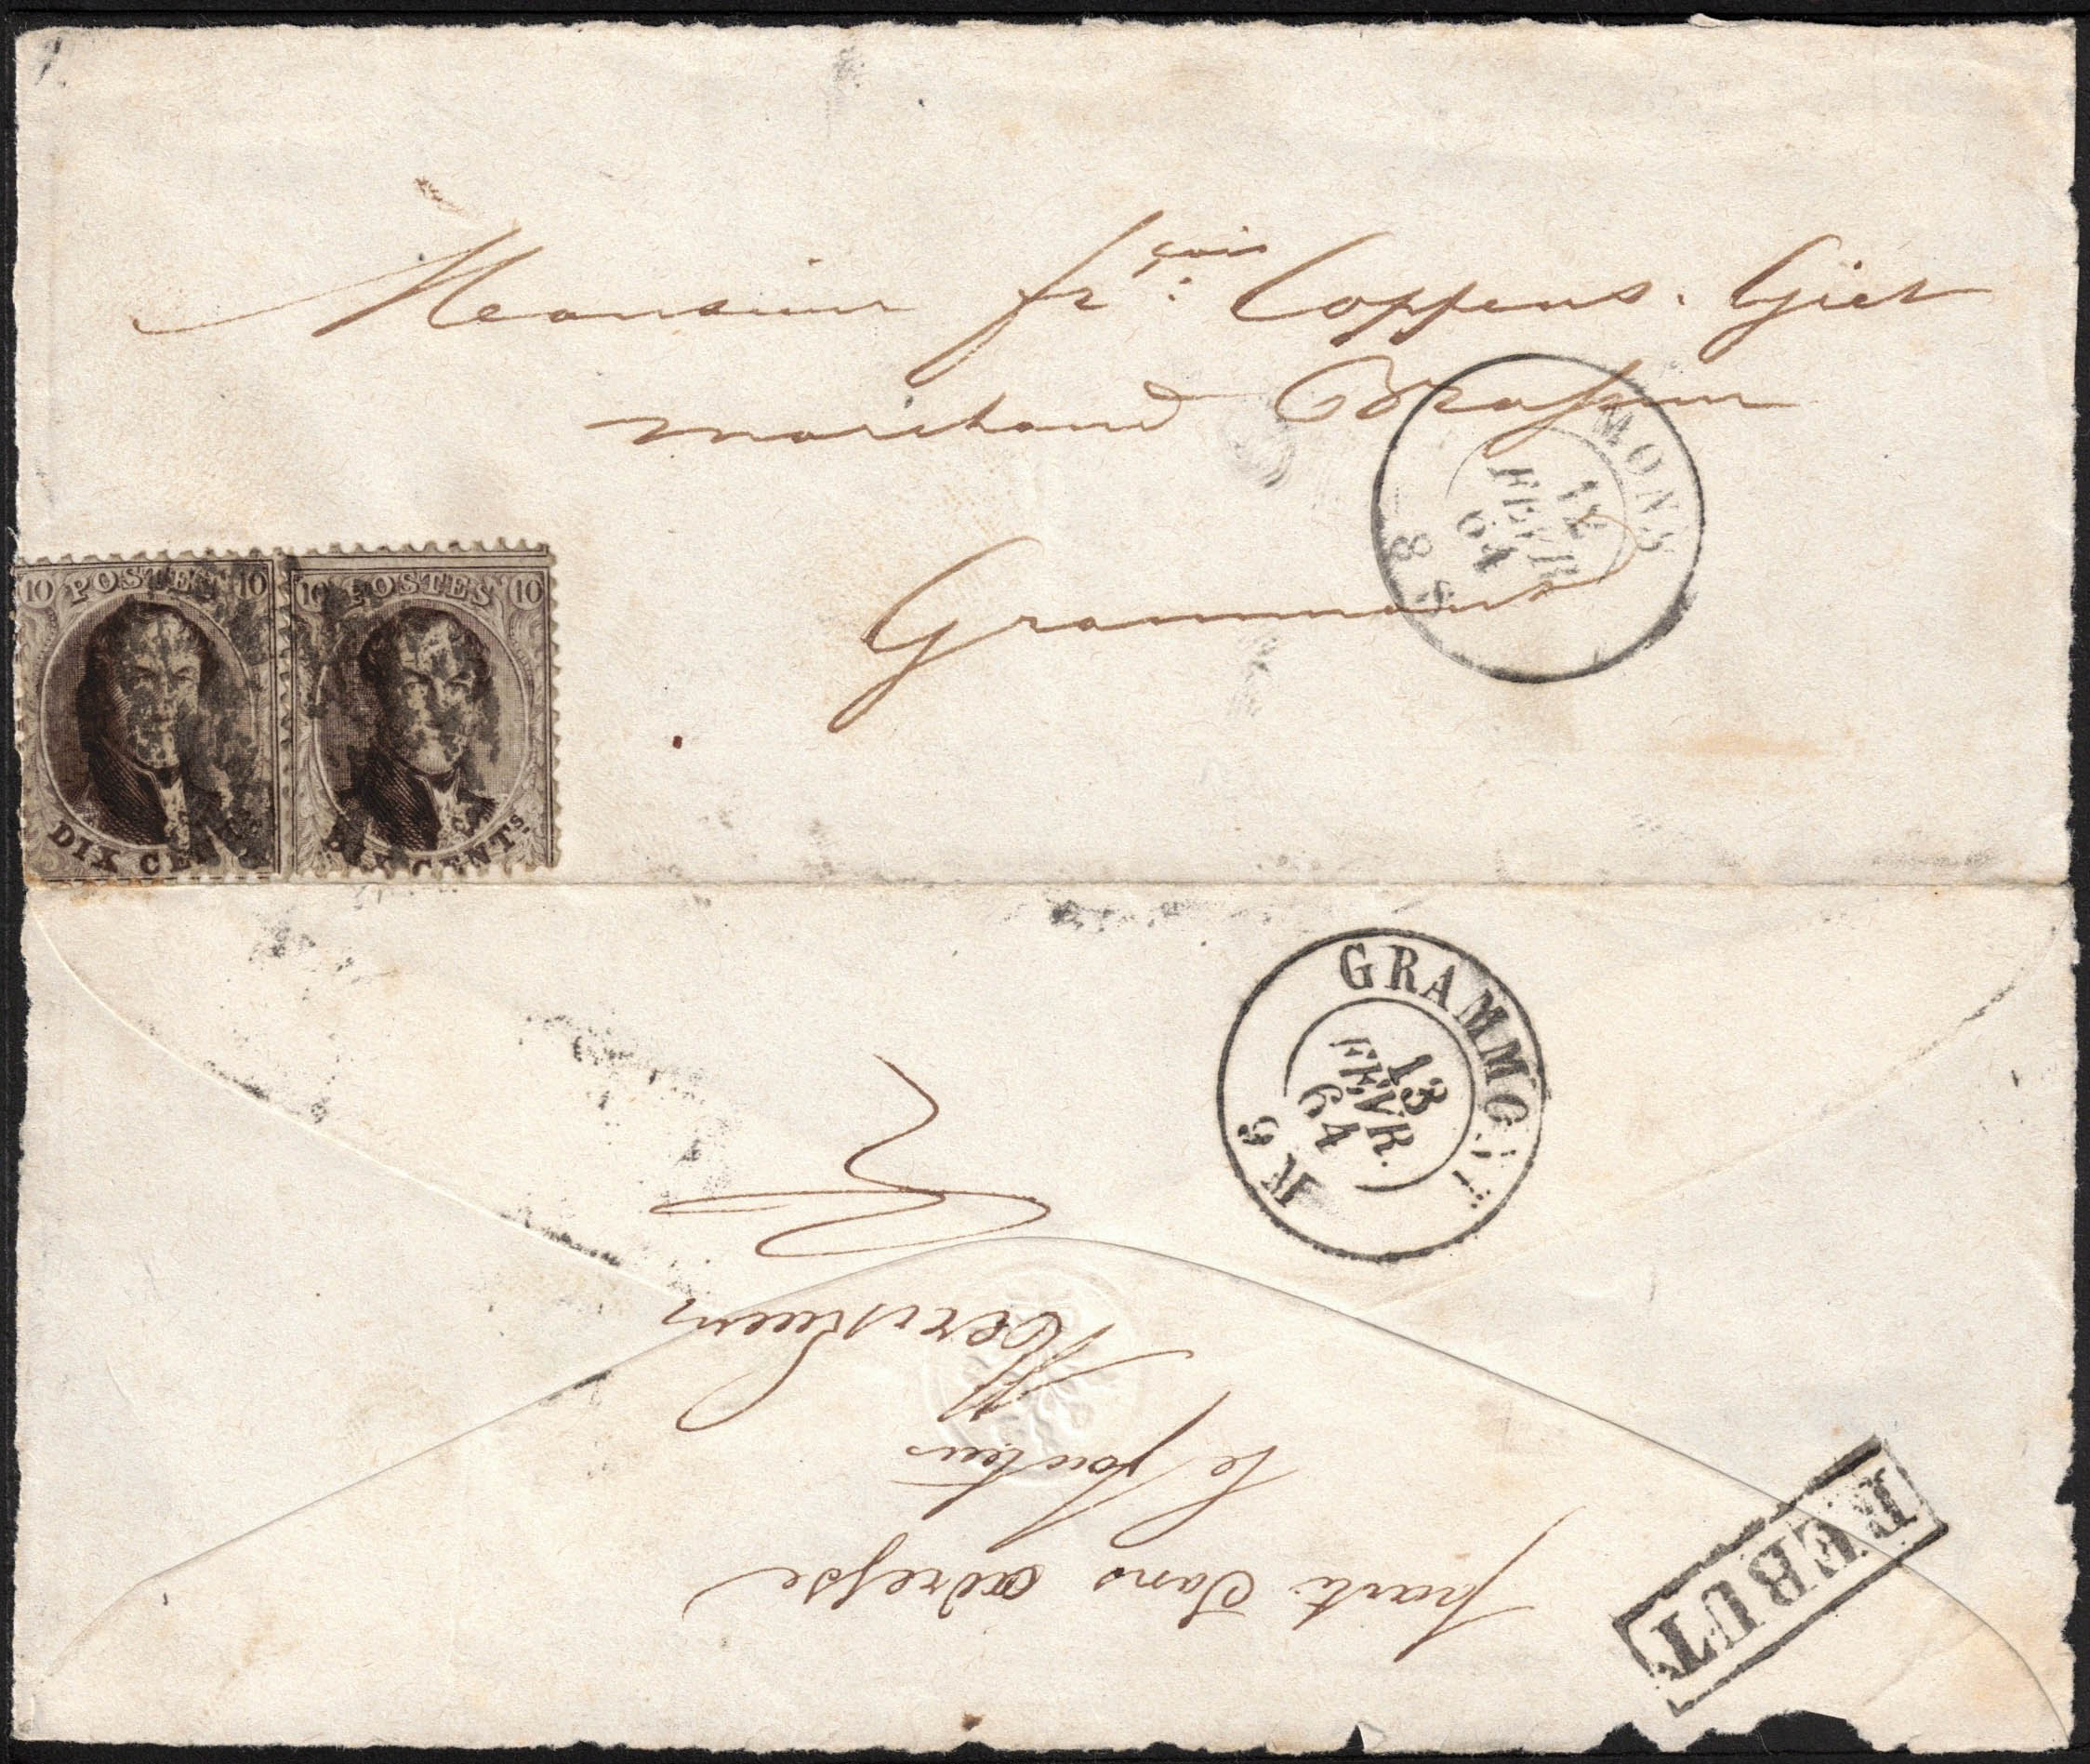 Monsieur frçois: Coppens. Giet
marchand Brasseur
Grammont
MONS
12
FEVR
64
8 S
10 POSTES 10
DIX CENTs.
10 POSTES 10
DIX CENTs.
GRAMMONT
13
FEVR.
64
9 M
parti Sans adresse
le facteur
REBUT